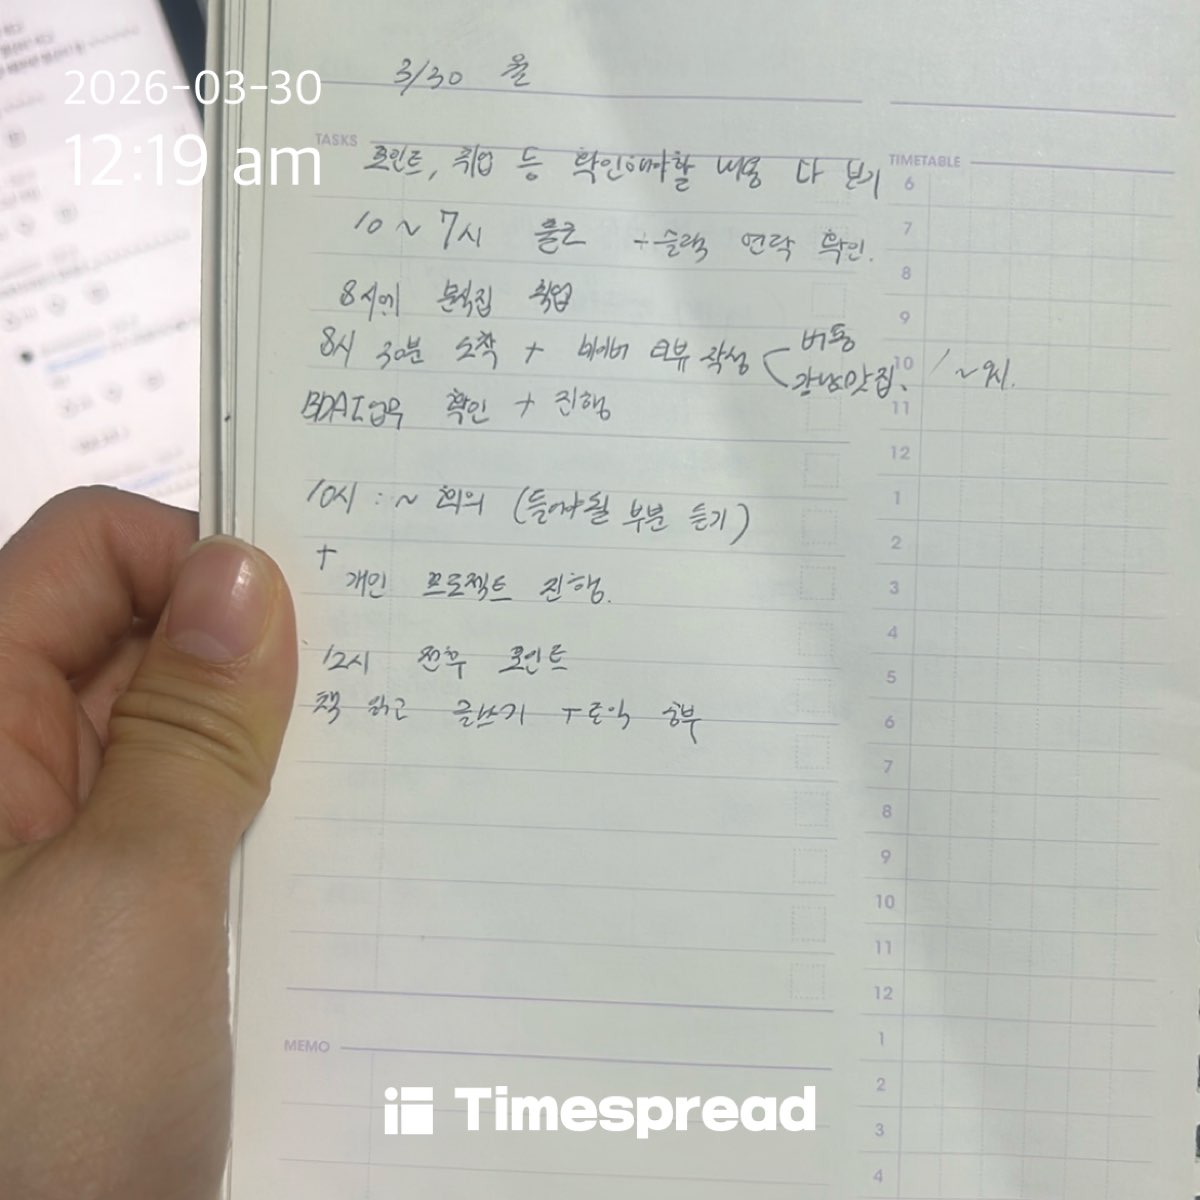 3/30 월
2026-03-30
12:19 am
TASKS
포인트, 취업 등 확인해야할 내용 다 보기
10 ~ 7시 출근 + 슬랙 연락 확인.
8시에 분식집 취업
8시 30분 도착 + 네이버 리뷰 작성 버퉁
강남맛집. / ~ 9시.
BDAI업무 확인 + 진행
10시 : ~ 회의 (들어야될 부분 듣기)
+
개인 프로젝트 진행.
12시 전후 포인트
책 읽고 글쓰기 + 토익 공부
MEMO
TIMETABLE
6
7
8
9
10
11
12
1
2
3
4
5
6
7
8
9
10
11
12
1
2
3
4
Timespread